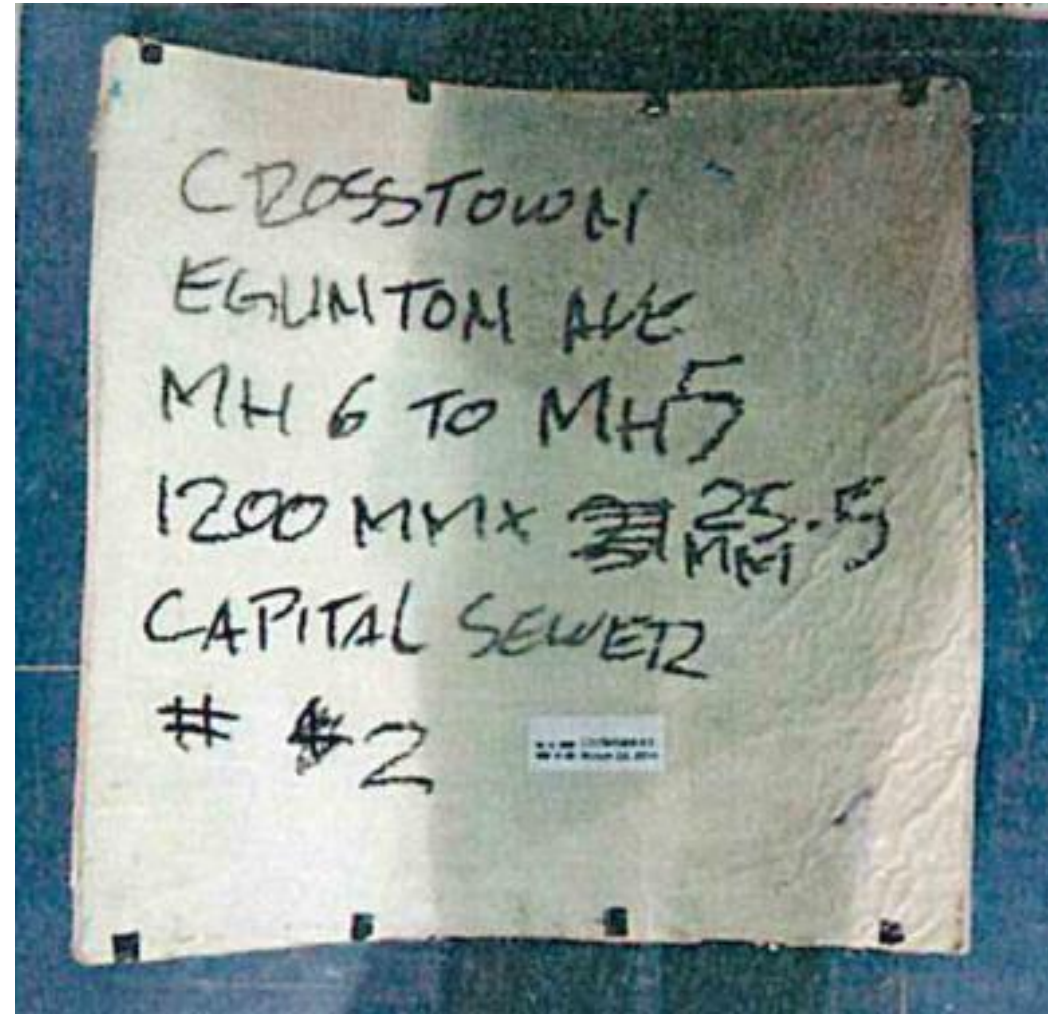 CROSSTOWN
EGLINTON AVE
MH 6 TO MH5
1200 MM X 25.5
MM
CAPITAL SEWER
# 2